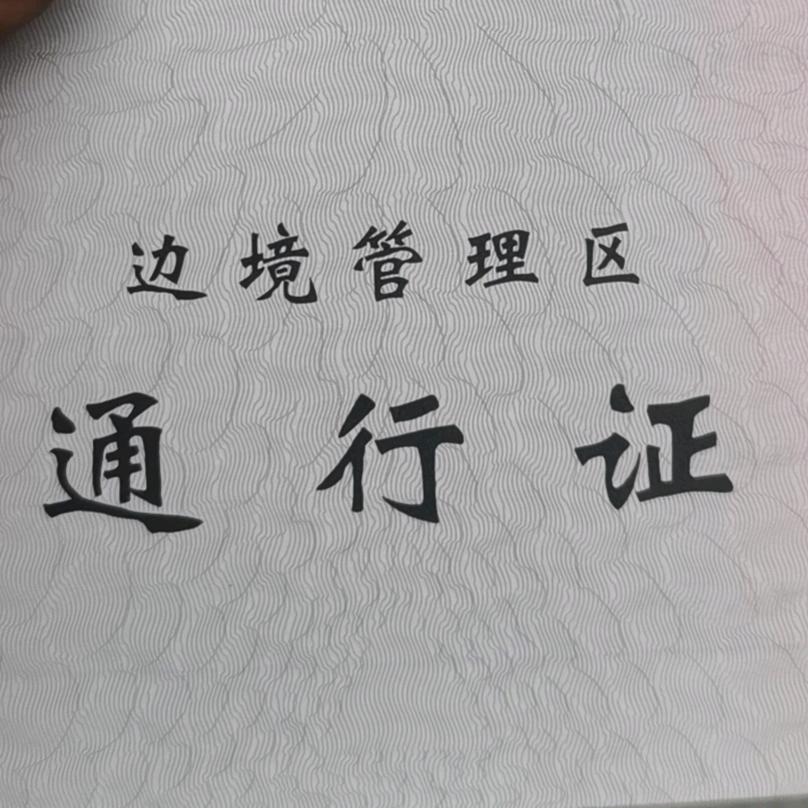 边境管理区
通行证